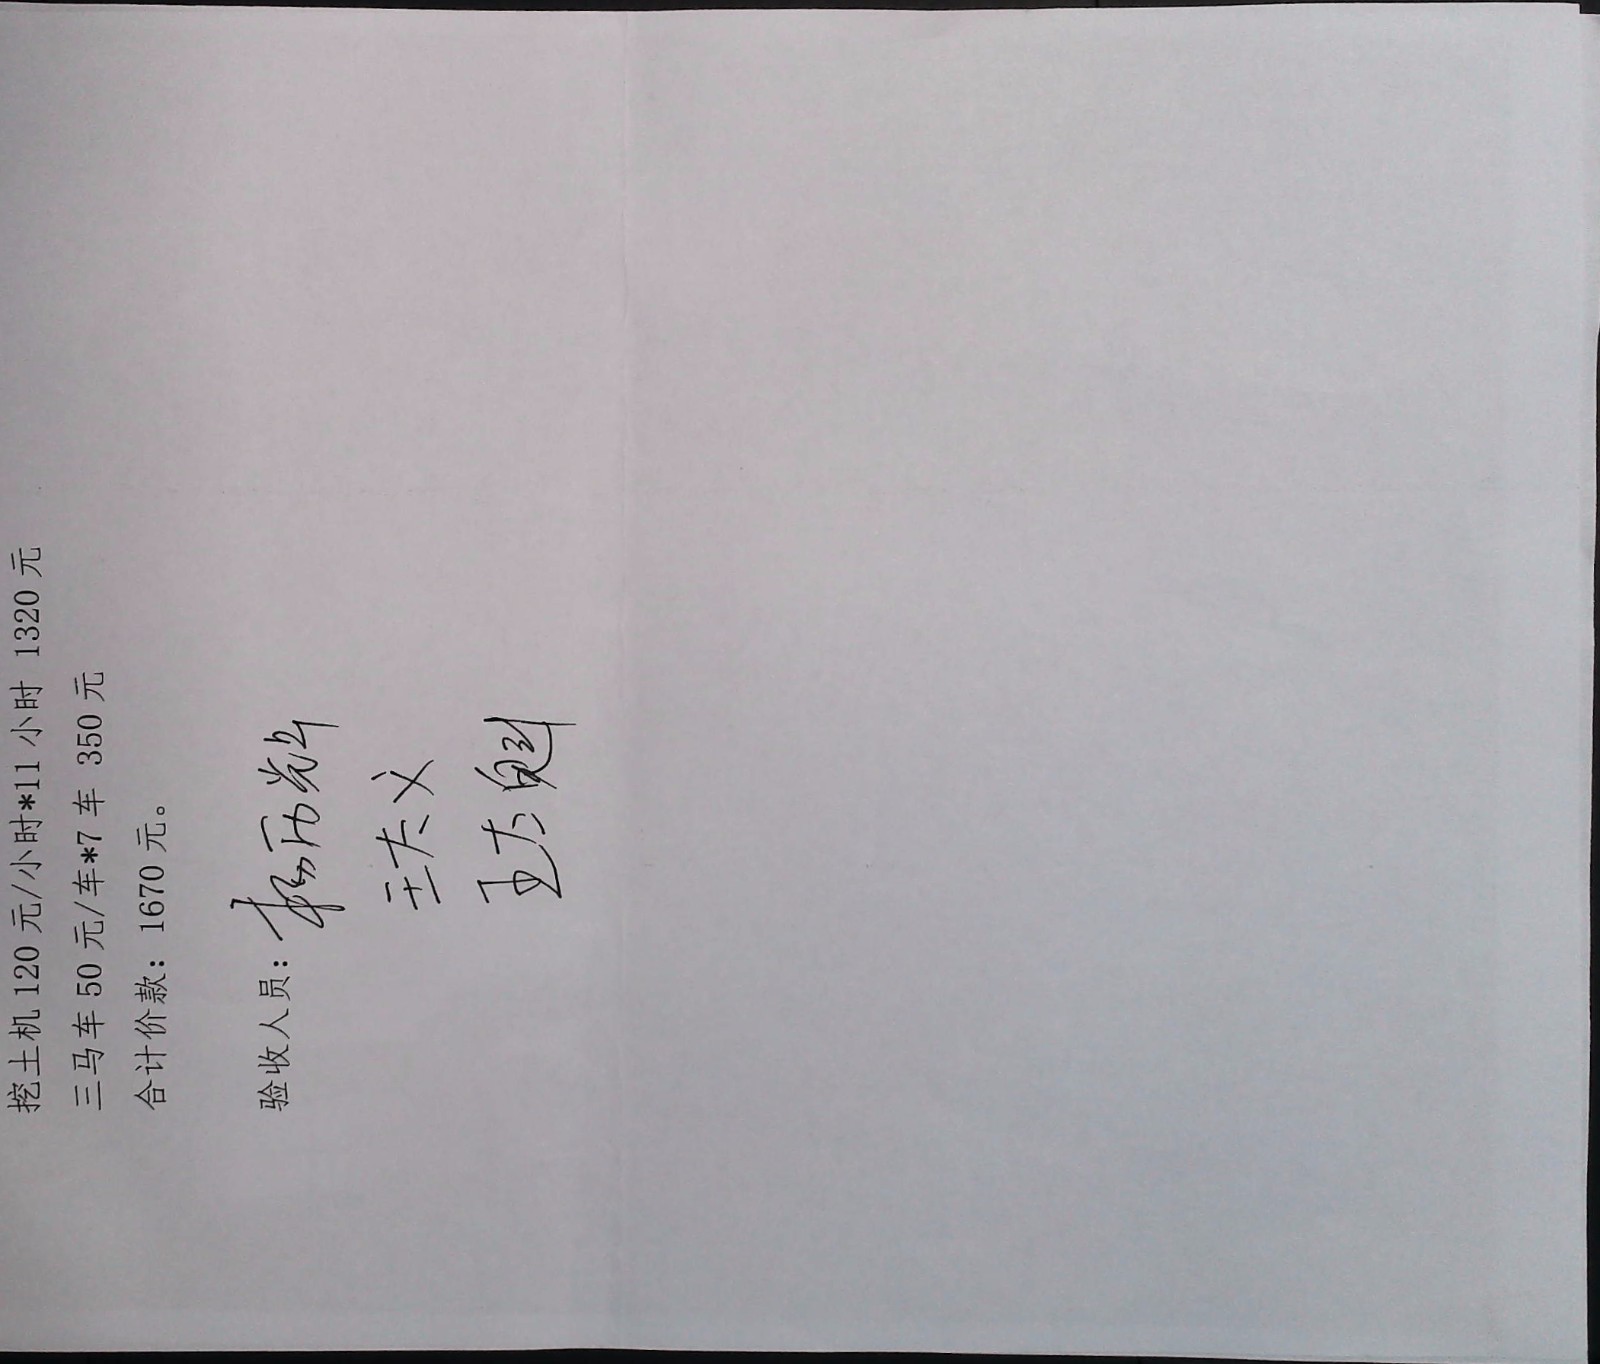 挖土机 120 元/小时*11 小时 1320 元
三马车 50 元/车*7 车 350 元
合计价款：1670 元。
验收人员：杨
王大义
王大魁